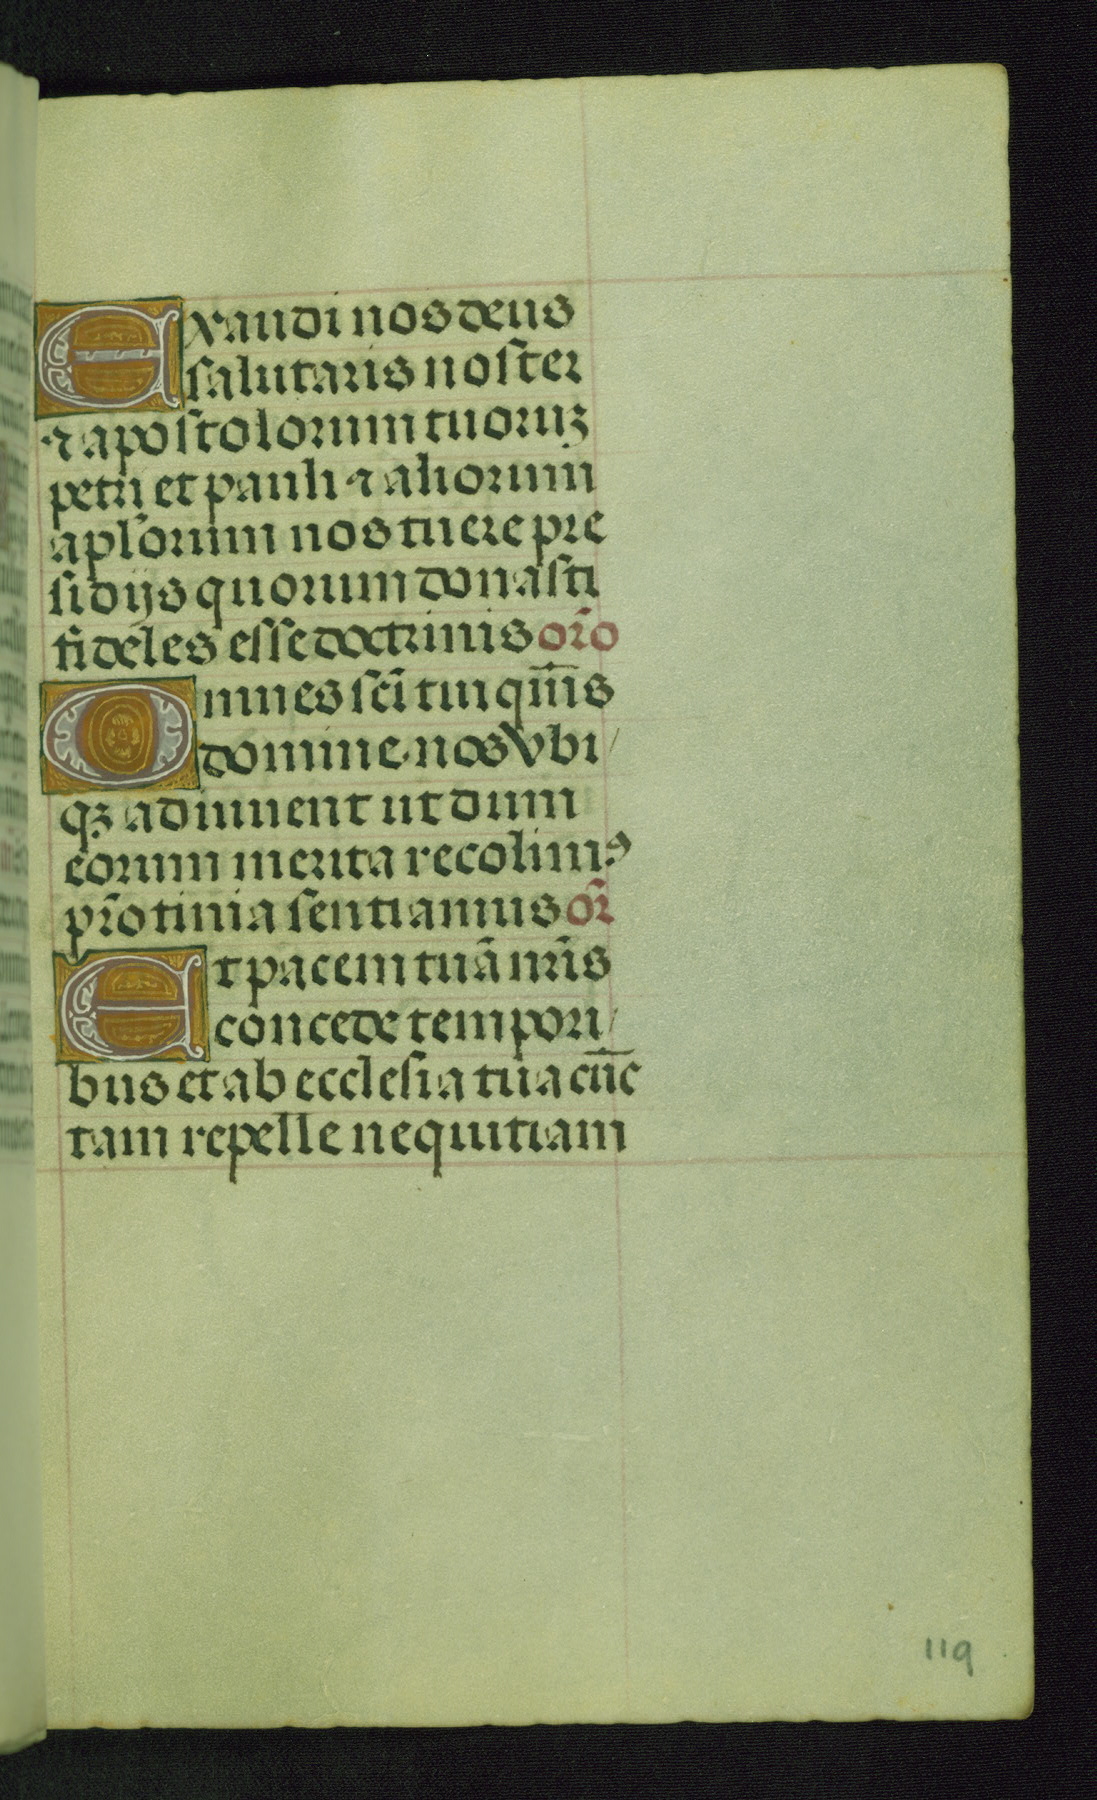 Exaudi nos deus
salutaris noster
⁊ apostolorum tuoruꝫ
petri et pauli ⁊ aliorum
apl̃orum nos tuere pre
sidijs quorum donasti
fideles esse doctrinis or̃o
Omnes sc̃i tui qm̄s
domine nos vbi/
qꝫ adiuuent ut dum
eorum merita recolimꝰ
pr̃otinia sentiamus or̃
Et pacem tuã nr̃is
concede tempori/
bus et ab ecclesia tua cūc
tam repelle nequitiam
119